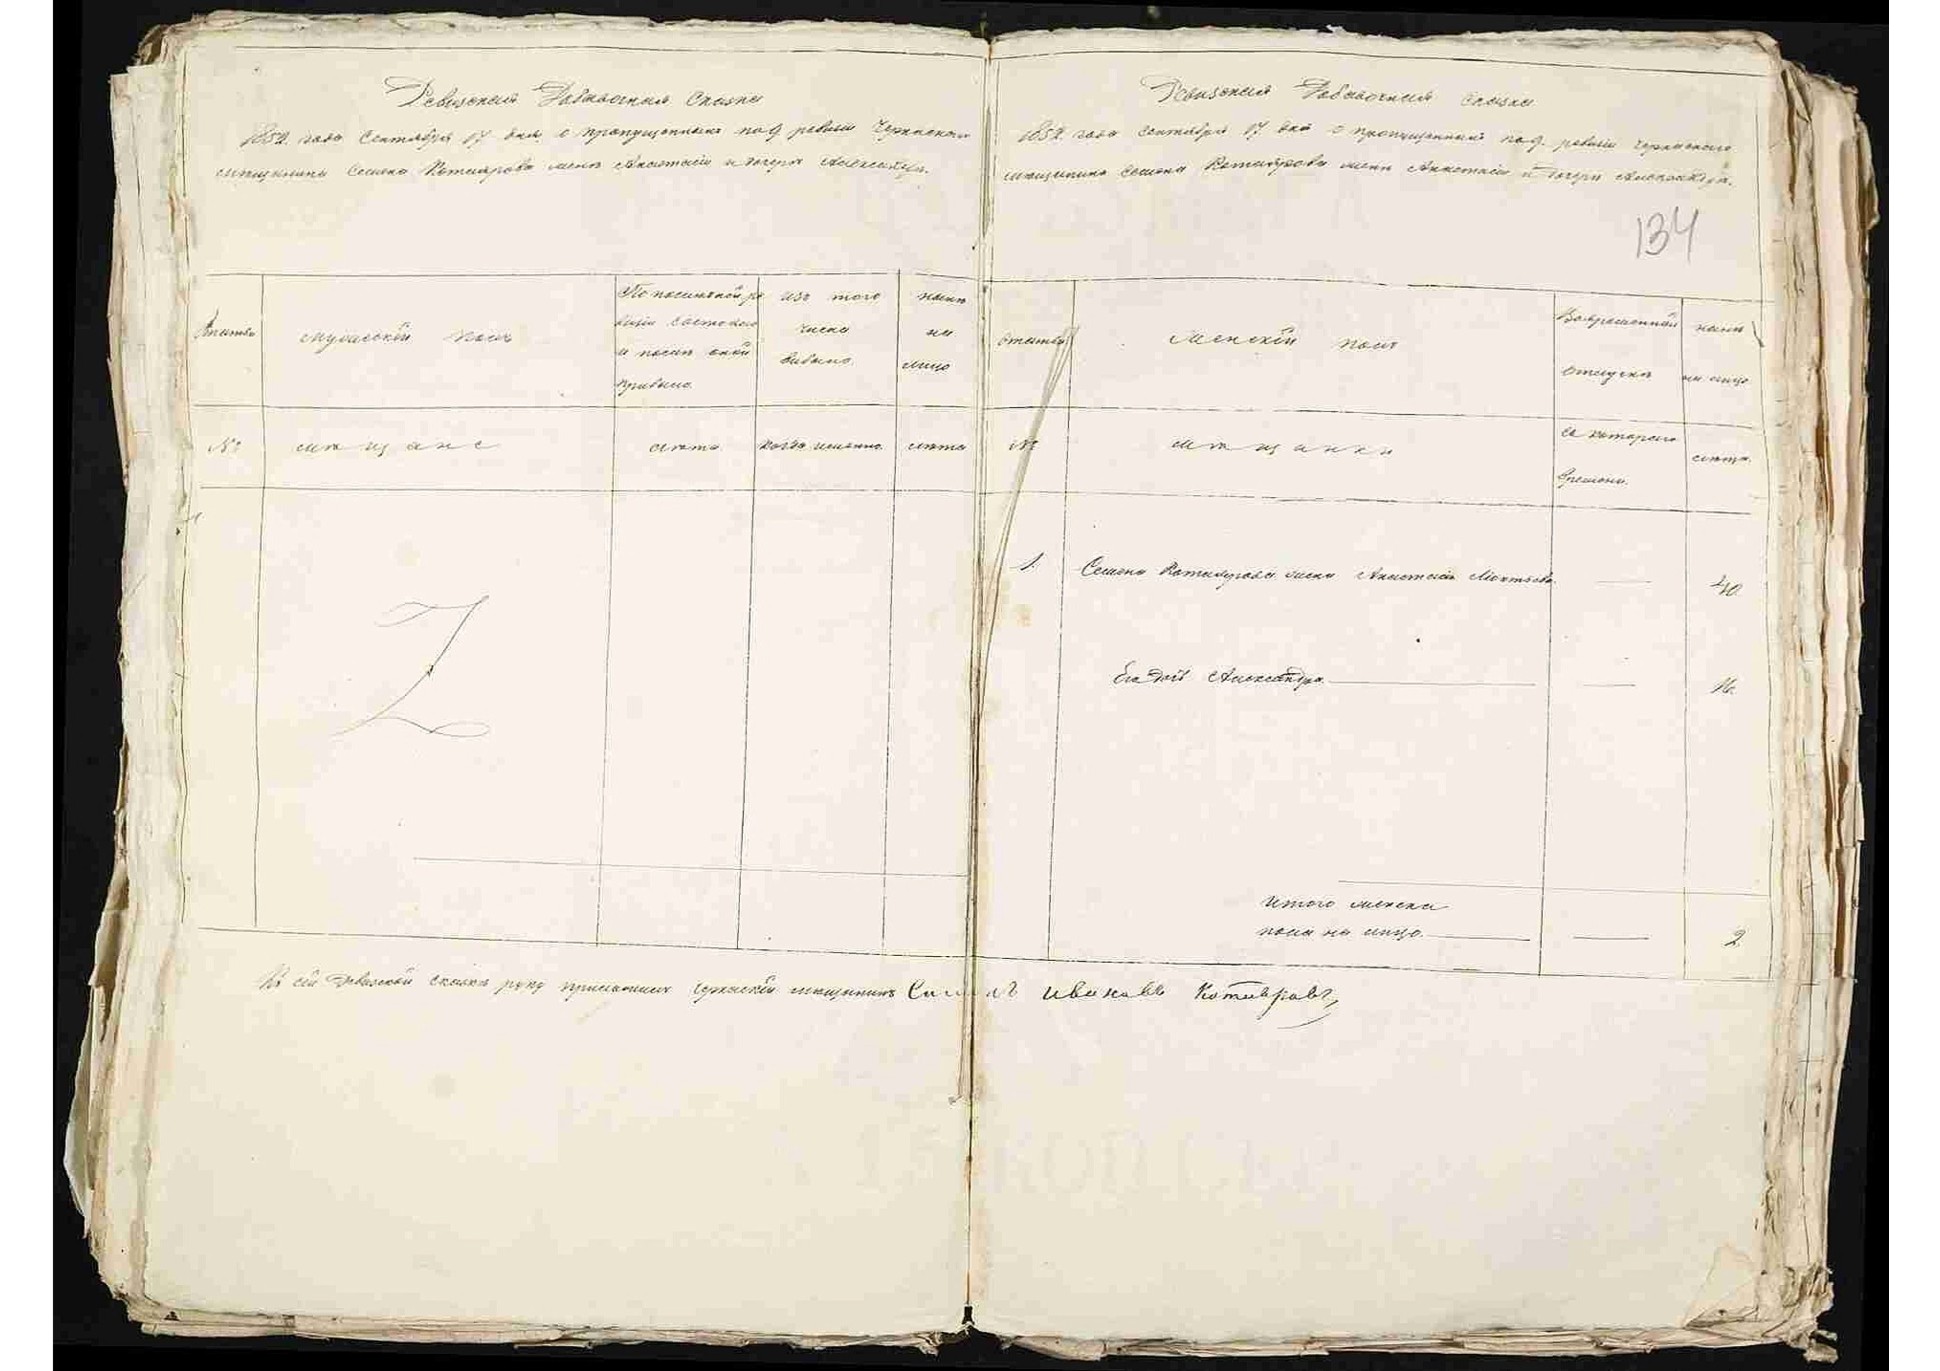 Ревизская Добавочная Сказка
1852 года Сентября 17 дня о пропущенныхъ по 9 ревизіи Черкаскаго
мещанина Семена Котлярова жены Анастасіи и дочери Александры.
Семейство
Мужескій полъ
По последней ре
визіи состояло
и после оной
прибыло.
изъ того
числа
выбыло.
ныне
на
лицо
№
мещане
лета.
когда именно.
лета
Ревизская Добавочная Сказка
1852 года Сентября 17 дня о пропущенныхъ по 9 ревизіи Черкаскаго
мещанина Семена Котлярова жены Анастасіи и дочери Александры.
134
Семейство
Женскій полъ
Во временной
отлучке
ныне
на лицо
№
мещанки
съ котораго
времени.
лета.
1.
Семена Котлярова жена Анастасія
40.
Его дочь Александра
16.
Итого женска
пола на лицо
2
Къ сей Ревизской сказке руку приложилъ Черкаскій мещанинъ Семенъ Ивановъ Котляровъ